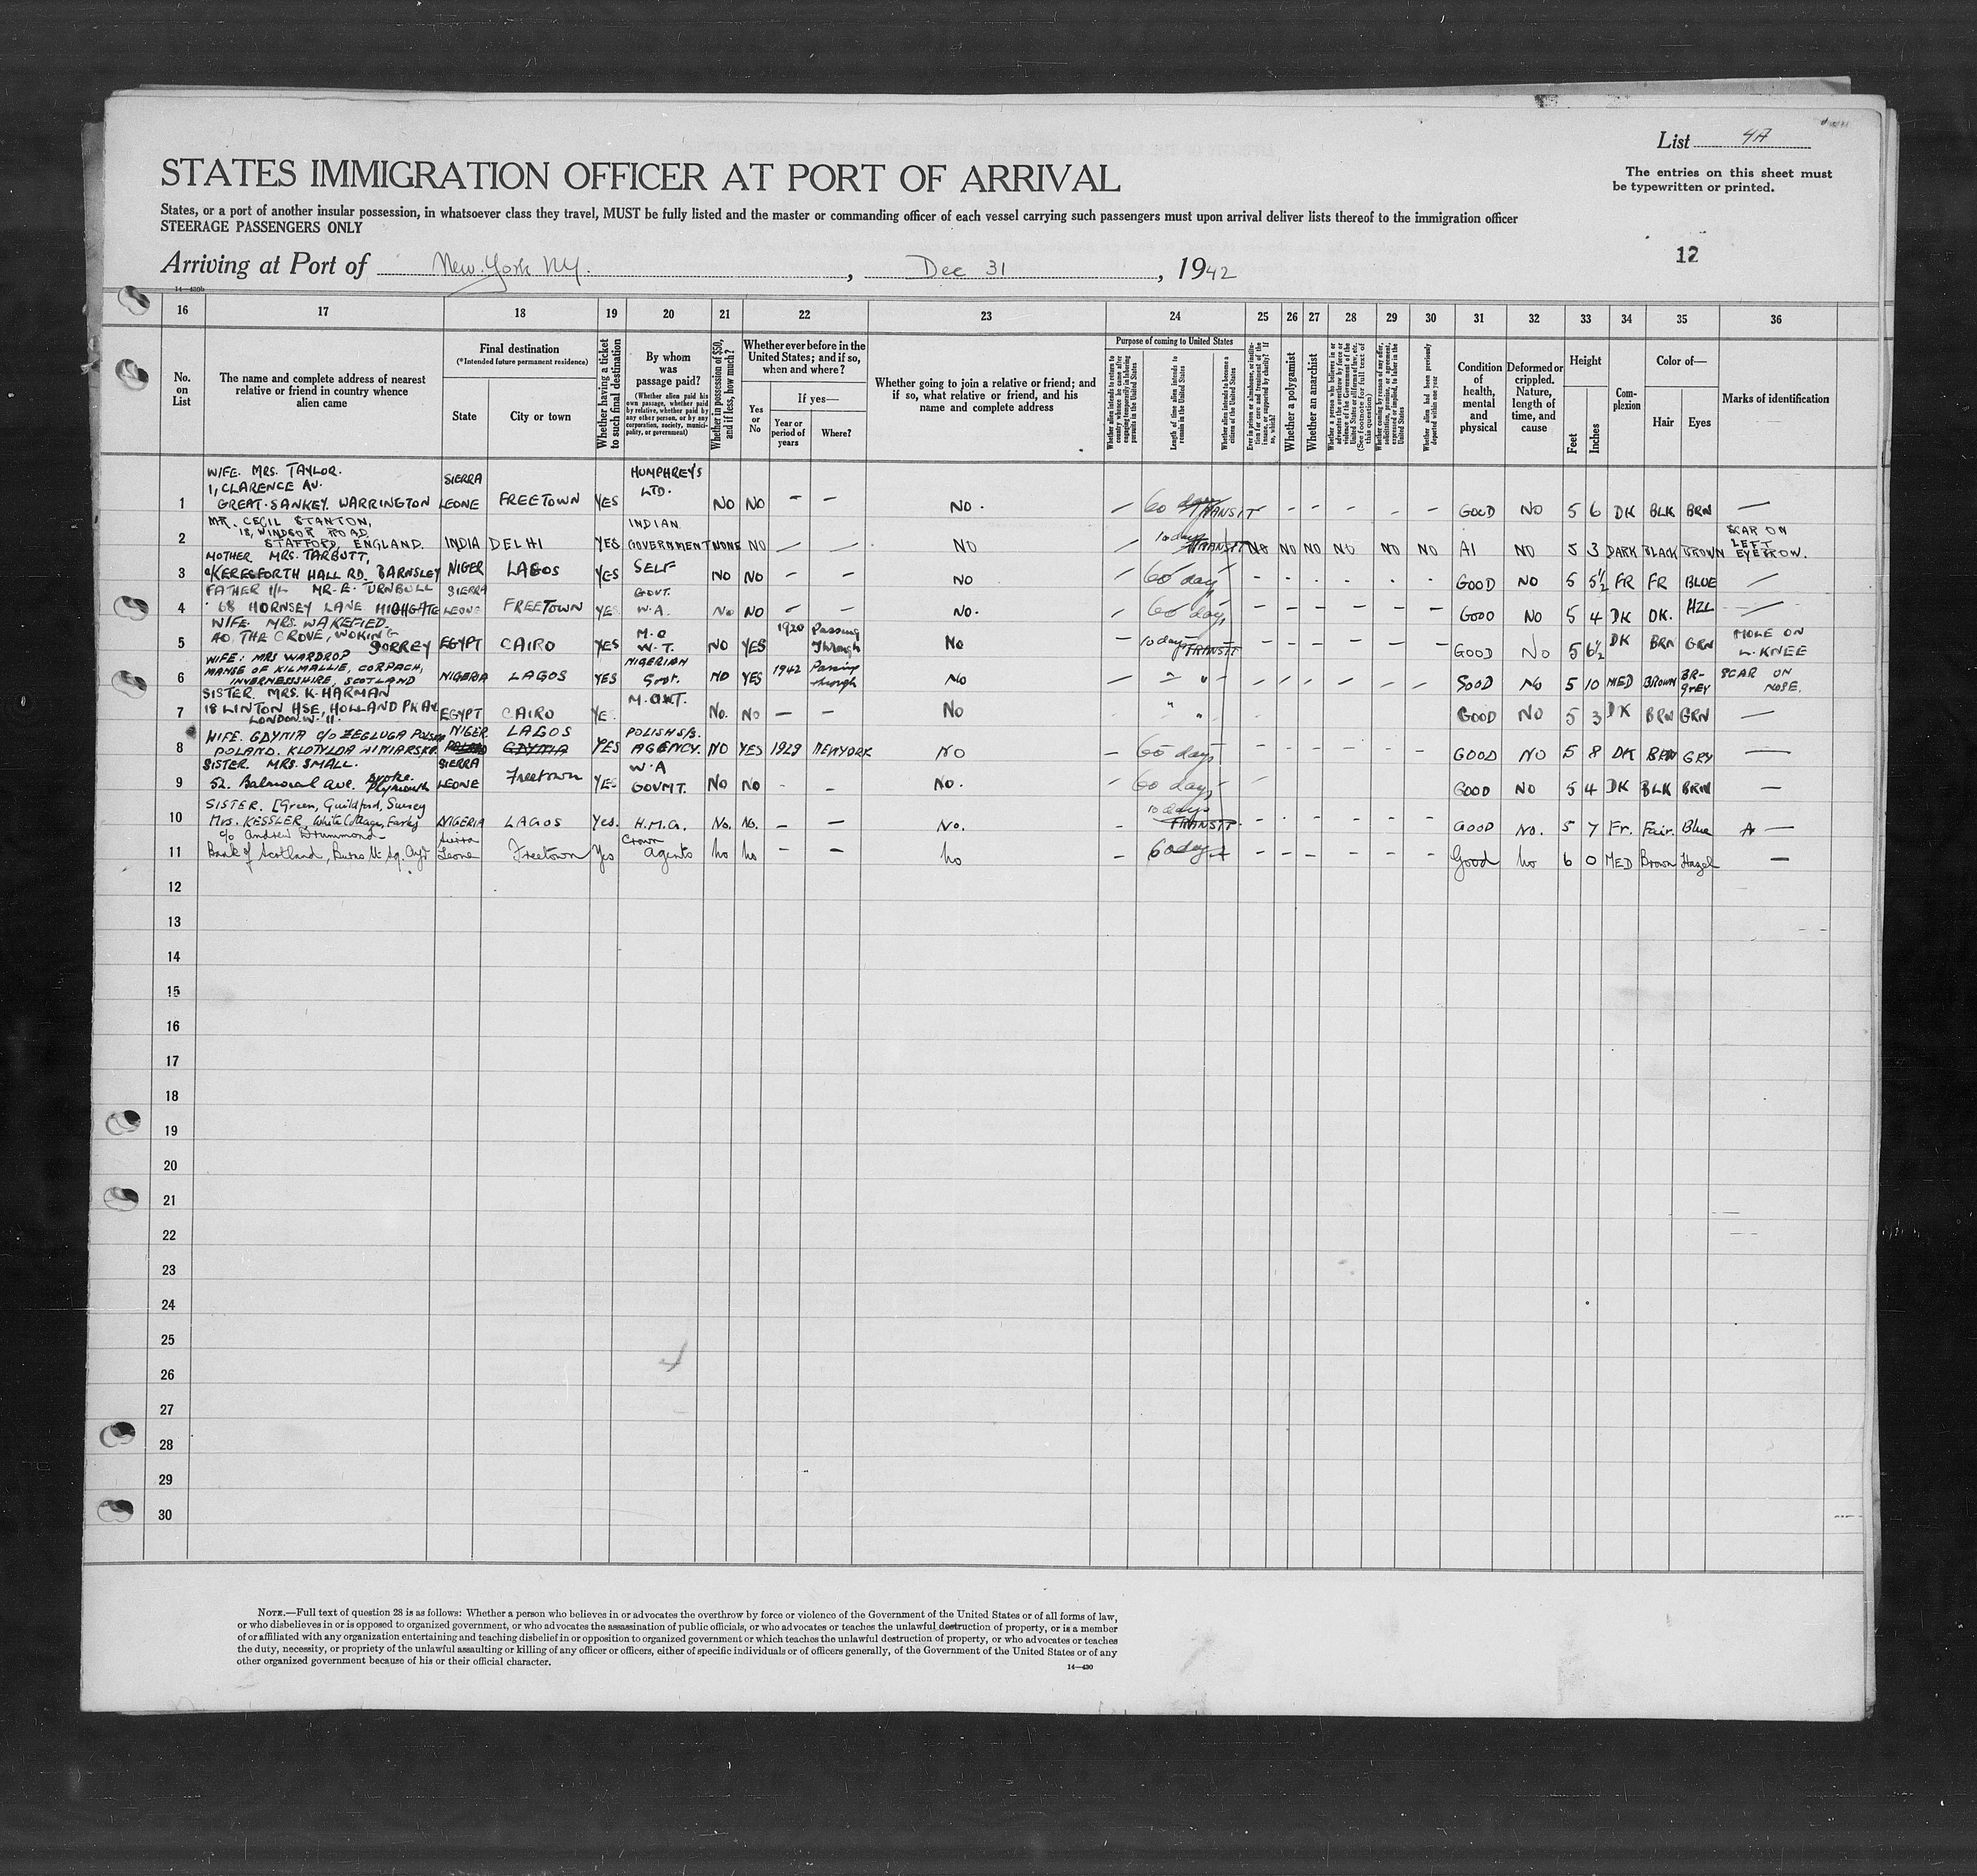 List 4A
The entries on this sheet must
be typewritten or printed.
STATES IMMIGRATION OFFICER AT PORT OF ARRIVAL
States, or a port of another insular possession, in whatsoever class they travel, MUST be fully listed and the master or commanding officer of each vessel carrying such passengers must upon arrival deliver lists thereof to the immigration officer
STEERAGE PASSENGERS ONLY
12
Arriving at Port of New York NY. , Dec 31 , 1942
14—430b
16 17 18 19 20 21 22 23 24 25 26 27 28 29 30 31 32 33 34 35 36
No. on List
The name and complete address of nearest relative or friend in country whence alien came
Final destination
(*Intended future permanent residence)
State
City or town
Whether having a ticket to such final destination
By whom was passage paid?
(Whether alien paid his own passage, whether paid by relative, whether paid by any other person, or by any corporation, society, municipality, or government)
Whether in possession of $50, and if less, how much?
Whether ever before in the United States; and if so, when and where?
Yes or No
If yes—
Year or period of years
Where?
Whether going to join a relative or friend; and if so, what relative or friend, and his name and complete address
Purpose of coming to United States
Whether alien intends to return to country whence he came after engaging temporarily in laboring pursuits in the United States
Length of time alien intends to remain in the United States
Whether alien intends to become a citizen of the United States
Ever in prison or almshouse, or institution for care and treatment of the insane, or supported by charity? If so, which?
Whether a polygamist
Whether an anarchist
Whether a person who believes in or advocates the overthrow by force or violence of the Government of the United States or all forms of law, etc. (See footnote for full text of this question)
Whether coming by reason of any offer, solicitation, promise, or agreement, expressed or implied, to labor in the United States
Whether alien had been previously deported within one year
Condition of health, mental and physical
Deformed or crippled. Nature, length of time, and cause
Height
Feet
Inches
Complexion
Color of—
Hair
Eyes
Marks of identification
1 WIFE. MRS. TAYLOR. 1, CLARENCE AV. GREAT-SANKEY. WARRINGTON SIERRA LEONE FREETOWN YES HUMPHREYS LTD. NO NO – – NO. – 60 days TRANSIT – – – – – – GOOD NO 5 6 DK BLK BRN —
2 MR. CECIL STANTON, 18, WINDSOR ROAD, STAFFORD, ENGLAND. INDIA DELHI YES INDIAN GOVERNMENT NONE NO – – NO – 10 days TRANSIT NO NO NO NO NO NO A1 NO 5 3 DARK BLACK BROWN SCAR ON LEFT EYEBROW.
3 MOTHER MRS. TARBUTT, KERESFORTH HALL RD. BARNSLEY NIGER LAGOS YES SELF NO NO – – NO – 60 days – – – – – – GOOD NO 5 5½ FR FR BLUE —
4 FATHER I/L MR. E. TURNBULL 68 HORNSEY LANE HIGHGATE SIERRA LEONE FREETOWN YES GOVT. W.A. NO NO – – NO. – 60 days – – – – – – GOOD NO 5 4 DK DK. HZL —
5 WIFE. MRS. WAKEFIED. THE GROVE, WOKING SURREY EGYPT CAIRO YES M.O W.T. NO YES 1920 Passing Through NO – 10 days TRANSIT – – – – – – GOOD NO 5 6½ DK BRN GRN MOLE ON L. KNEE
6 WIFE: MRS WARDROP MANSE OF KILMALLIE, CORPACH, INVERNESSSHIRE, SCOTLAND NIGERIA LAGOS YES NIGERIAN Govt. NO YES 1942 Passing through NO – " " – – – – – – GOOD NO 5 10 MED BROWN BR-GREY SCAR ON NOSE.
7 SISTER MRS. K. HARMAN 18 LINTON HSE, HOLLAND PK AV. LONDON. W. 11. EGYPT CAIRO YE. NO. NO – – NO " " GOOD NO 5 3 DK BRN GRN —
8 WIFE. GDYNIA c/o ZEGLUGA POLSKA POLAND. KLOTYLDA NIGER LAGOS GDYNIA YES POLISH S/S. AGENCY. NO YES 1929 NEWYORK NO – 60 days – – – – – – GOOD NO 5 8 DK BRN GRY —
9 SISTER. MRS. SMALL. 52. Balmoral Ave. Stoke. Plymouth SIERRA LEONE Freetown YES W.A GOVMT. NO NO - – NO. – 60 days – GOOD NO 5 4 DK BLK BRN —
10 SISTER. [Green, Guildford, Surrey Mrs. KESSLER, White Cottage, Farley NIGERIA LAGOS Yes. H.M.G. No. No. – – No. – 10 days TRANSIT. – – – – – – GOOD No. 5 7 Fr. Fair. Blue —
11 c/o Andrew Drummond Bank of Scotland, Burns St. Sq. Ayr Sierra Leone Freetown Yes Crown Agents no no – – no – 60 days – – – – – – Good no 6 0 MED Brown Hazel —
12
13
14
15
16
17
18
19
20
21
22
23
24
25
26
27
28
29
30
NOTE.—Full text of question 28 is as follows: Whether a person who believes in or advocates the overthrow by force or violence of the Government of the United States or of all forms of law,
or who disbelieves in or is opposed to organized government, or who advocates the assassination of public officials, or who advocates or teaches the unlawful destruction of property, or is a member
of or affiliated with any organization entertaining and teaching disbelief in or opposition to organized government or which teaches the unlawful destruction of property, or who advocates or teaches
the duty, necessity, or propriety of the unlawful assaulting or killing of any officer or officers, either of specific individuals or of officers generally, of the Government of the United States or of any
other organized government because of his or their official character.
14—430